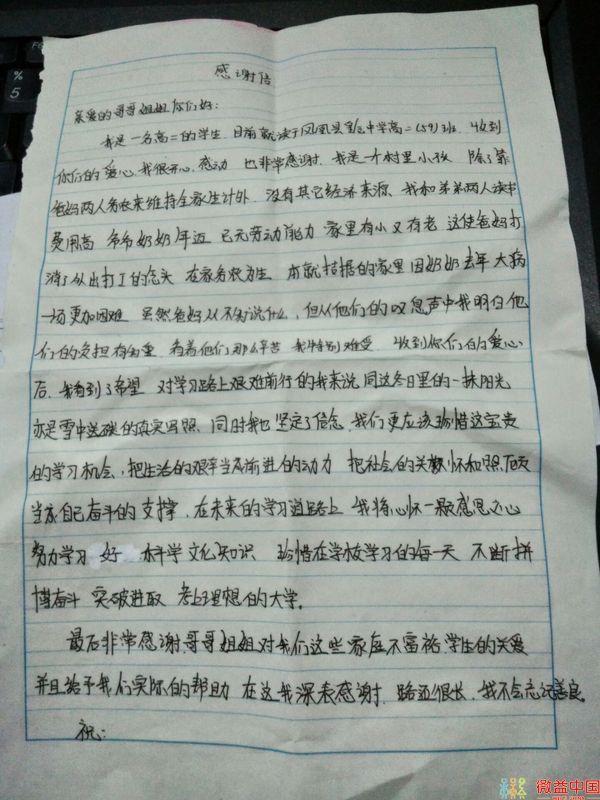 感谢信
亲爱的哥哥姐姐你们好:
我是一名高二的学生.目前就读于凤凰县 中学高二(59)班.收到
你们的爱心,我很开心.感动 也非常感谢.我是一个村里小孩 除了靠
爸妈两人务农来维持全家生计外.没有其它经济来源.我和弟弟两人读书
费用高 爷爷奶奶年迈 已无劳动能力 家里有小又有老 这使爸妈打
消了外出打工的念头 在家务农为生 本就拮据的家里因奶奶去年大病
一场更加困难 虽然爸妈从不对我说什么,但从他们的叹息声中我明白他
们的负担有多重.看着他们那么辛苦 我特别难受.收到你们的爱心
后.我看到了希望 对学习路上艰难前行的我来说 同这冬日里的一抹阳光
亦是雪中送碳的真实写照.同时我也坚定了信念.我们更应该珍惜这宝贵
的学习机会,把生活的艰辛当成前进的动力 把社会的关 怀和照顾
当成自己奋斗的支撑,在未来的学习道路上 我将心怀一颗感恩之心
努力学习 好 科学文化知识 珍惜在学校学习的每一天 不断拼
搏奋斗 突破进取 考上理想的大学.
最后非常感谢.哥哥姐姐对我们这些家庭不富裕学生的关爱
并且给予我们实际的帮助 在这我深表感谢.路还很长.我不会忘记善良.
祝:
%
5
微益中国